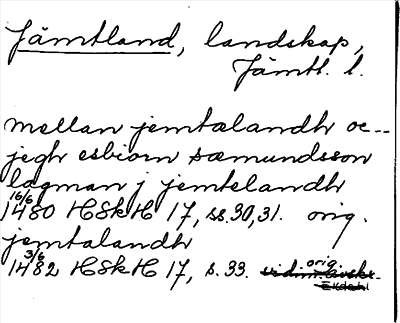 Jämtland, landskap,
Jämtl. l.
mellan jemtalandh oc --
jegh esbiorn sæmundsson
lagman j jemtelandh
16/6 1480 HSkH 17, ss. 30, 31. orig.
jemtalandh
3/6 1482 HSkH 17, s. 33. orig.
Ekdahl